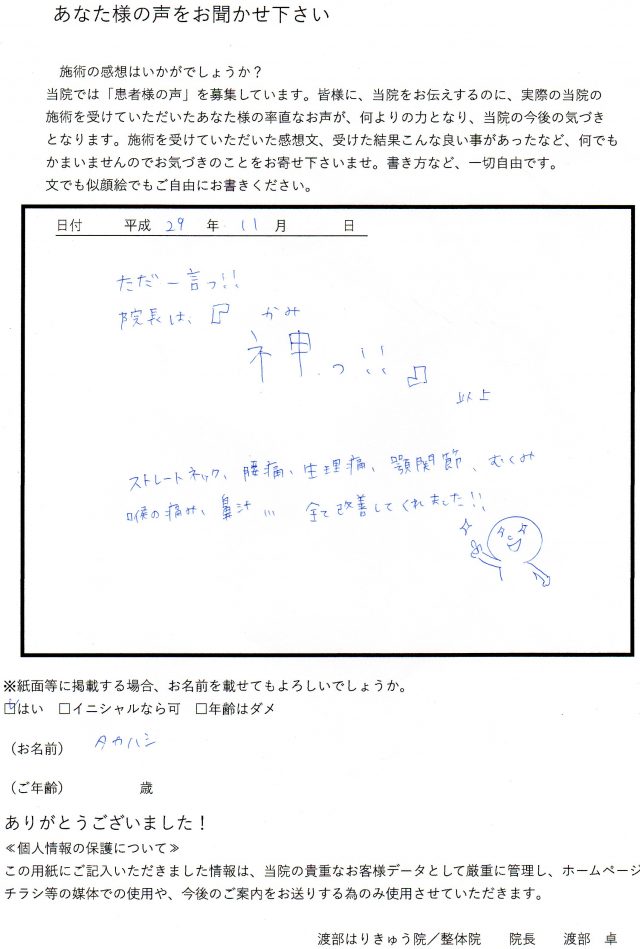 あなた様の声をお聞かせ下さい
施術の感想はいかがでしょうか？
当院では「患者様の声」を募集しています。皆様に、当院をお伝えするのに、実際の当院の
施術を受けていただいたあなた様の率直なお声が、何よりの力となり、当院の今後の気づき
となります。施術を受けていただいた感想文、受けた結果こんな良い事があったなど、何でも
かまいませんのでお気づきのことをお寄せ下さいませ。書き方など、一切自由です。
文でも似顔絵でもご自由にお書きください。
日付　平成 29 年 11 月　日
ただ一言っ!!
院長は、『 かみ
神っ!!』
以上
ストレートネック、腰痛、生理痛、顎関節、むくみ
喉の痛み、鼻汁… 全て改善してくれました!!
※紙面等に掲載する場合、お名前を載せてもよろしいでしょうか。
☑はい　□イニシャルなら可　□年齢はダメ
（お名前）　タカハシ
（ご年齢）　歳
ありがとうございました！
≪個人情報の保護について≫
この用紙にご記入いただきました情報は、当院の貴重なお客様データとして厳重に管理し、ホームページ
チラシ等の媒体での使用や、今後のご案内をお送りする為のみ使用させていただきます。
渡部はりきゅう院／整体院　院長　渡部　卓